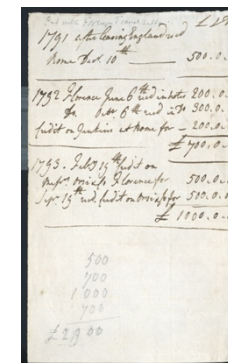 1791 after leaving England recd
Rome Decr 10th — 500.0.
1792 Florence June 6th recd in notes 200.0.
Do Octr 6th recd in Do 300.0.
Credit on Jenkins at Rome for — 200.0.
£ 700.0.
1793. Feby 15th Credit on
Messrs Orsi & Co Florence for 500.0.
Sepr 15th recd Credit on Orsi & Co for 500.0.
£ 1000.0.
500
700
1000
700
£ 2900